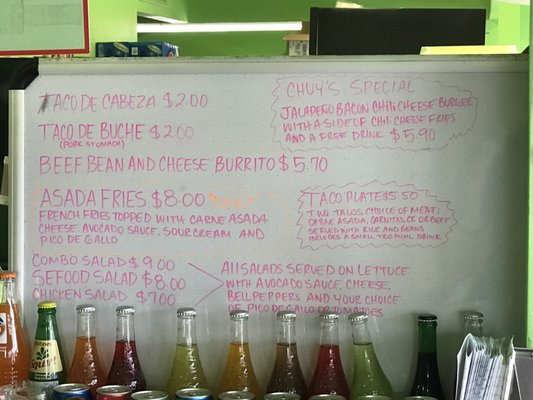 TACO DE CABEZA $2.00
TACO DE BUCHE $2.00
(PORK STOMACH)
BEEF BEAN AND CHEESE BURRITO $5.70
ASADA FRIES $8.00
FRENCH FRIES TOPPED WITH CARNE ASADA
CHEESE, AVOCADO SAUCE, SOUR CREAM AND
PICO DE GALLO
COMBO SALAD $9.00
SEFOOD SALAD $8.00
CHICKEN SALAD $7.00
All SALADS SERVED ON LETTUCE
WITH AVOCADO SAUCE, CHEESE,
BELL PEPPERS AND YOUR CHOICE
OF PICO DE GALLO OR TOMATOES
CHUY'S SPECIAL
JALAPEÑO BACON CHILI CHEESE BURGER
WITH A SIDE OF CHILI CHEESE FRIES
AND A FREE DRINK $5.90
TACO PLATE $5.50
TWO TACOS CHOICE OF MEAT,
CARNE ASADA, CARNITAS, OR BEEF
SERVED WITH RICE AND BEANS
INCLUDES A SMALL TROPICAL DRINK
Squirt